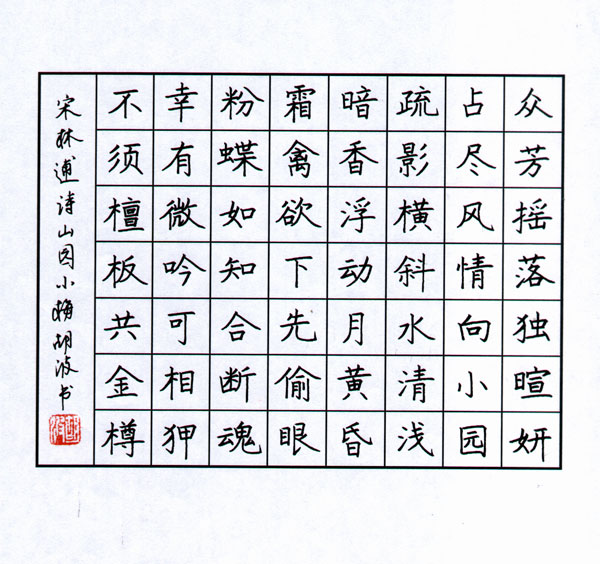 众芳摇落独暄妍
占尽风情向小园
疏影横斜水清浅
暗香浮动月黄昏
霜禽欲下先偷眼
粉蝶如知合断魂
幸有微吟可相狎
不须檀板共金樽
宋林逋诗山园小梅胡波书